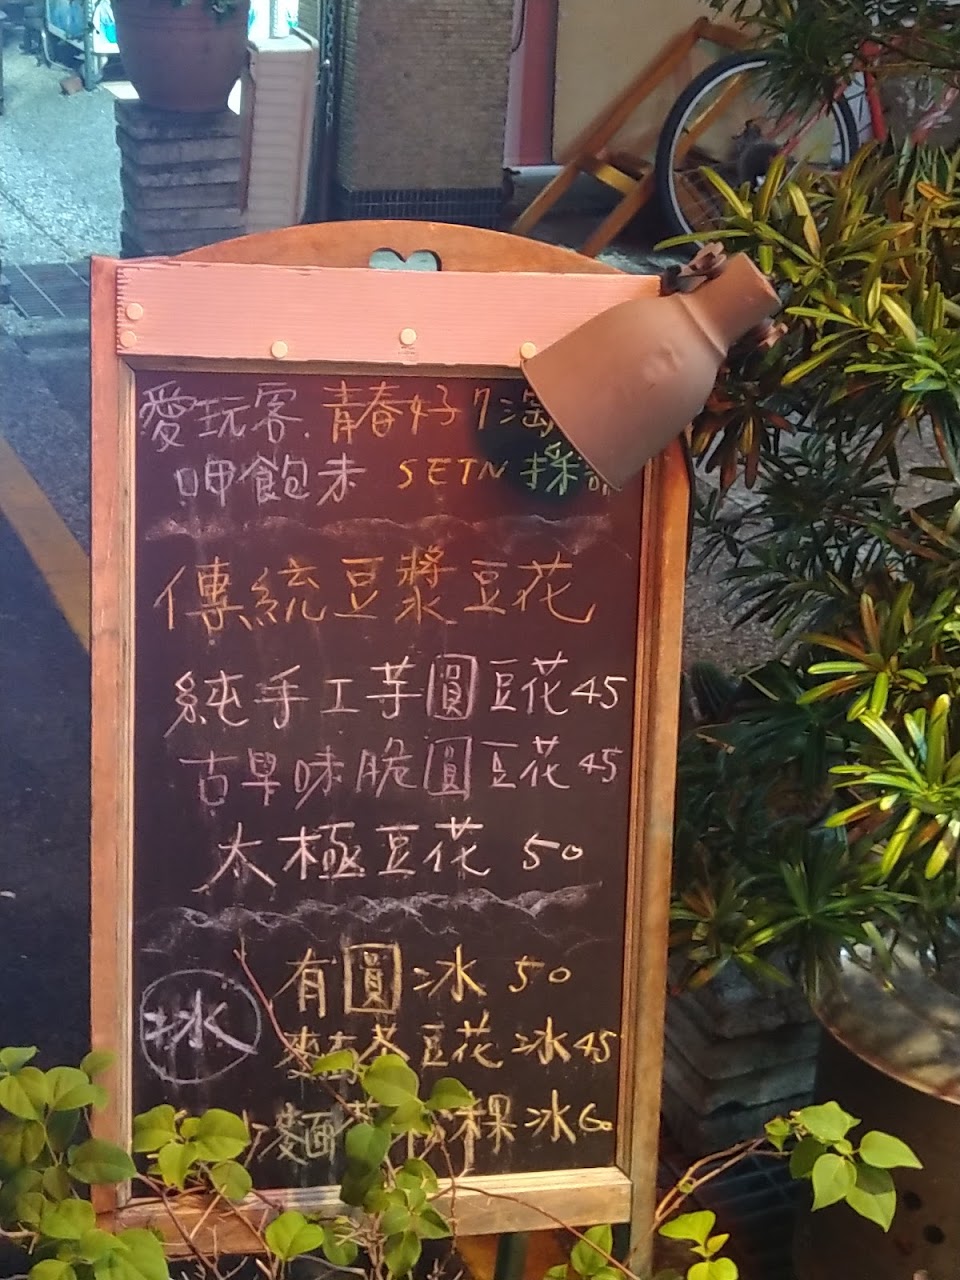 愛玩客.青春好7淘
呷飽未 SETN 採訪
傳統豆漿豆花
純手工芋圓豆花45
古早味脆圓豆花45
太極豆花 50
冰
有圓冰 50
麥茶豆花冰45
粿冰60